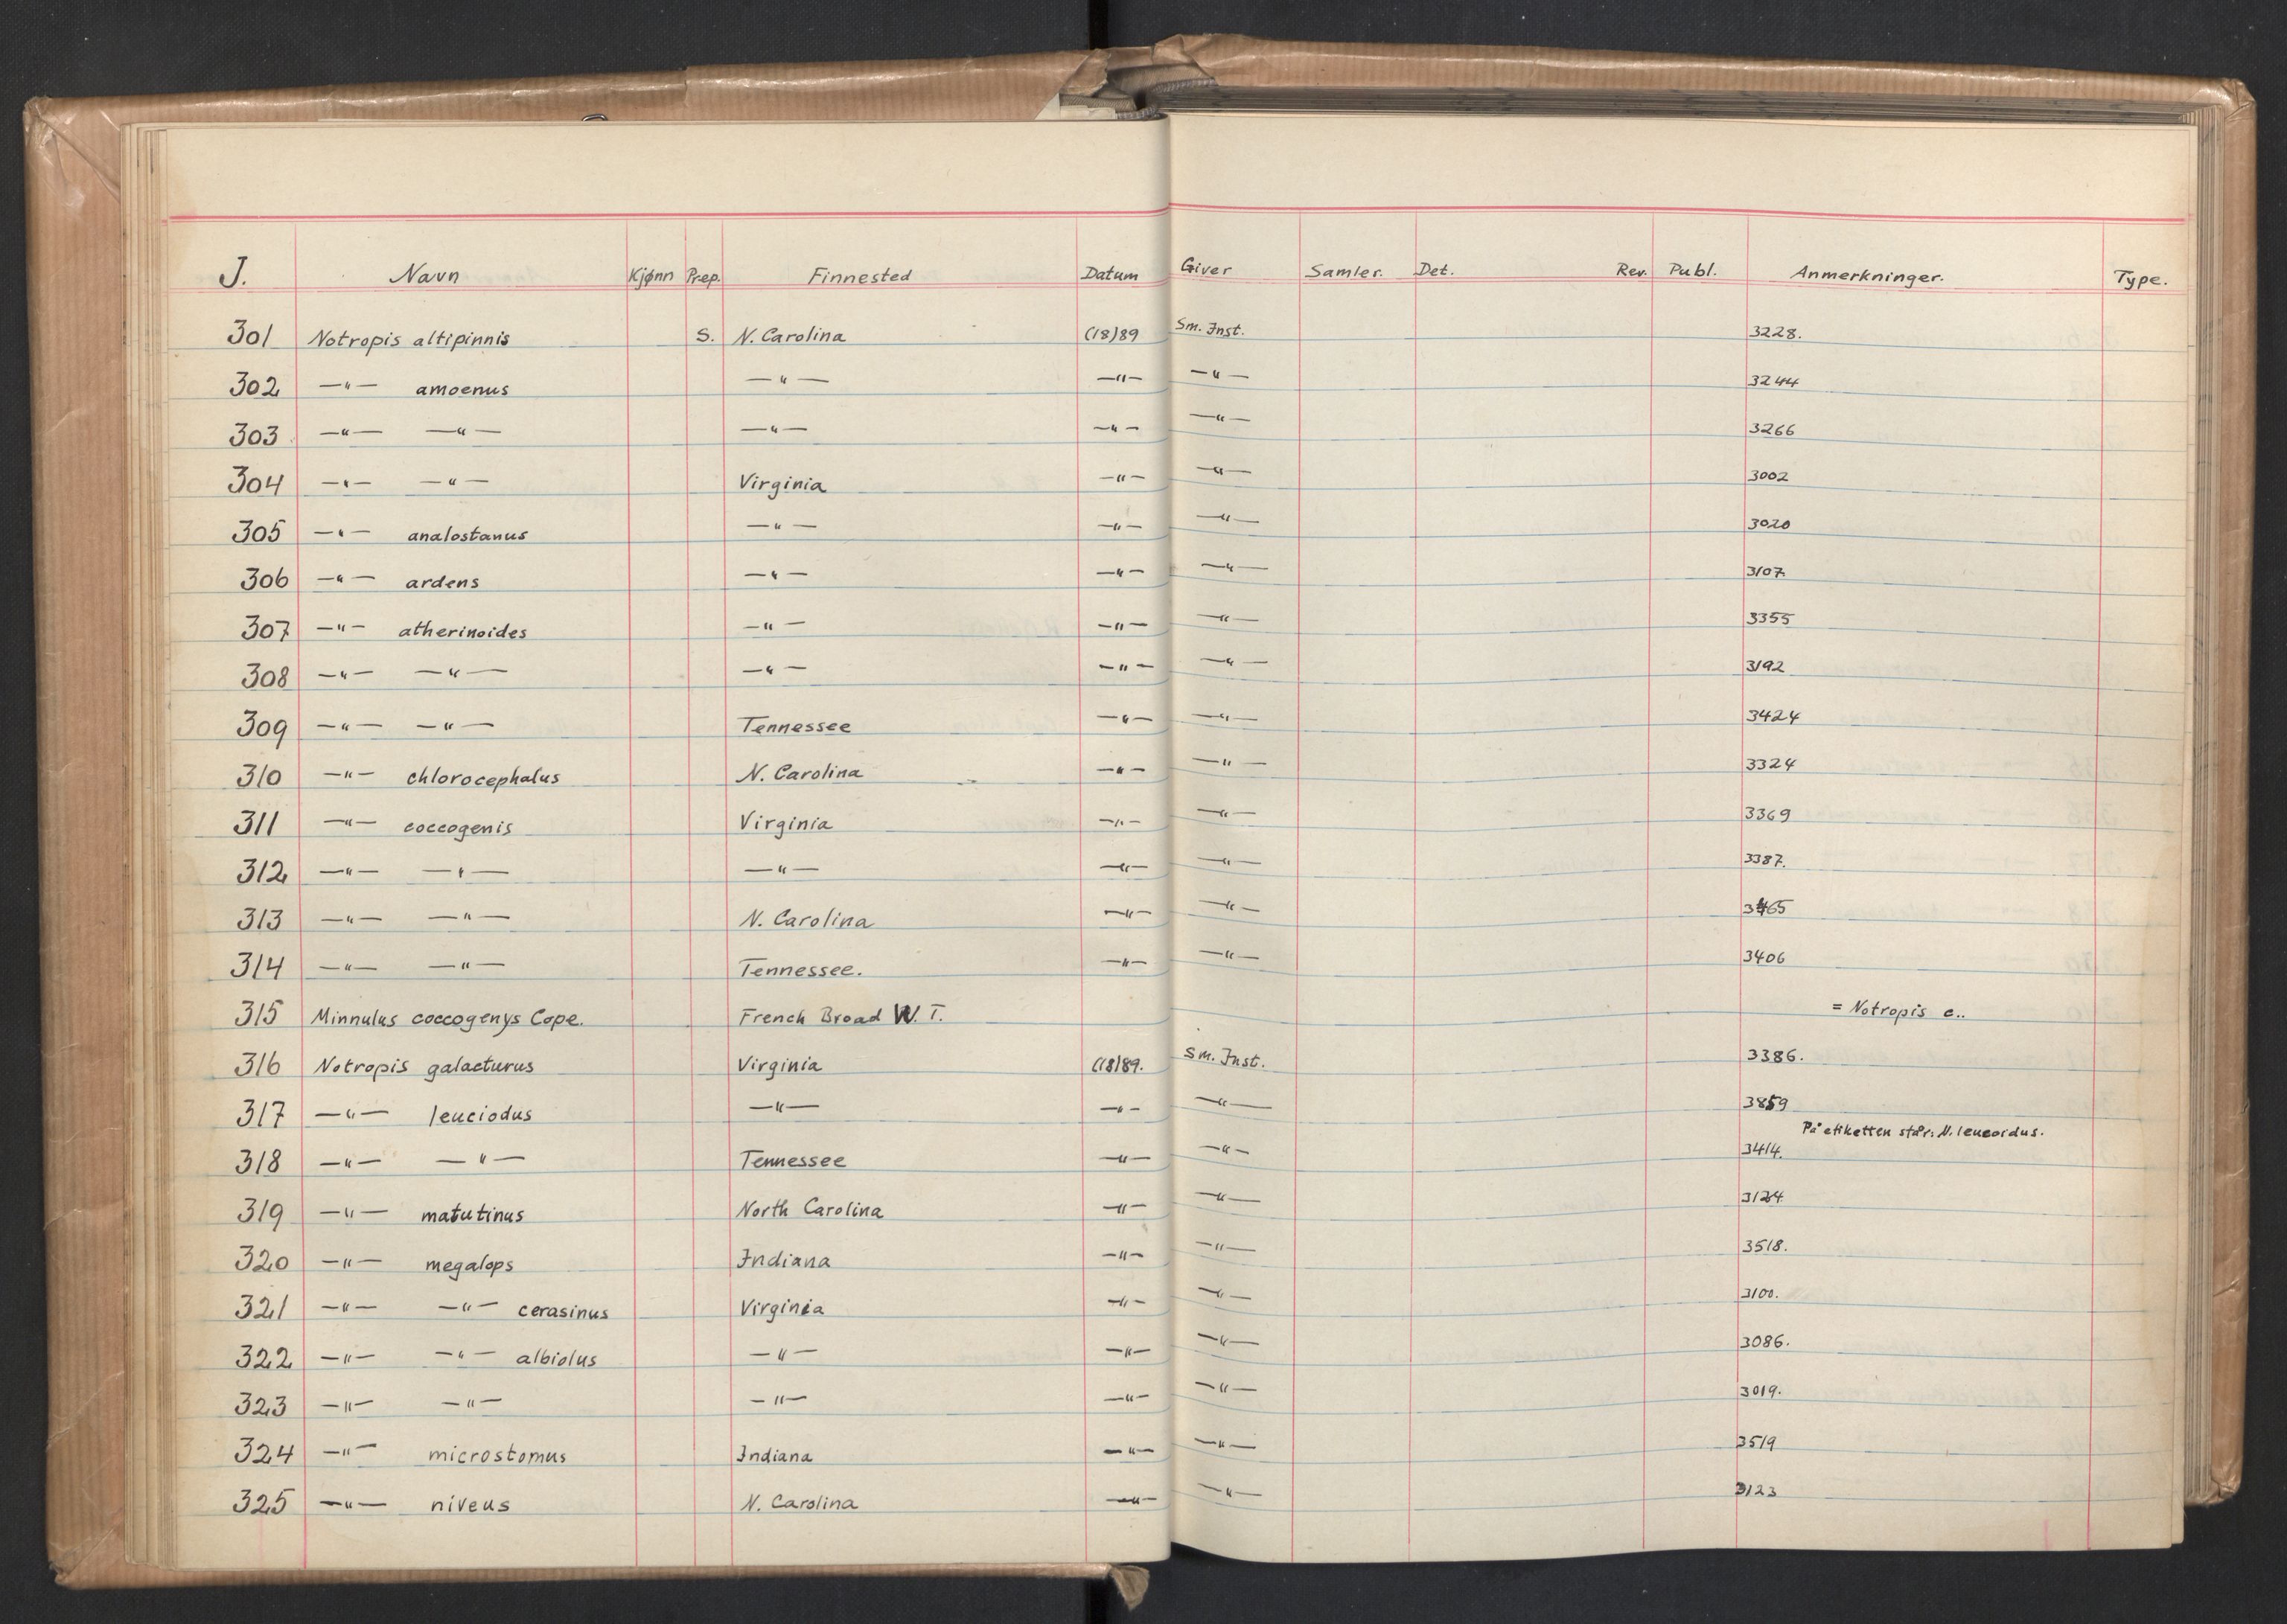 J. Navn Kjønn Prep. Finnested Datum Giver Samler. Det. Rev. Publ. Anmerkninger. Type.
301 Notropis altipinnis S. N. Carolina (18)89 Sm. Inst. 3228.
302 —"— amoenus —"— —"— —"— 3244
303 —"— —"— —"— —"— —"— 3266
304 —"— —"— Virginia —"— —"— 3002
305 —"— analostanus —"— —"— —"— 3020
306 —"— ardens —"— —"— —"— 3107.
307 —"— atherinoides —"— —"— —"— 3355
308 —"— —"— —"— —"— —"— 3192
309 —"— —"— Tennessee —"— —"— 3424
310 —"— chlorocephalus N. Carolina —"— —"— 3324
311 —"— coccogenis Virginia —"— —"— 3369
312 —"— —"— —"— —"— —"— 3387.
313 —"— —"— N. Carolina —"— —"— 3465
314 —"— —"— Tennessee. —"— —"— 3406
315 Minnulus coccogenys Cope. French Broad W. T. = Notropis c..
316 Notropis galacturus Virginia (18)89. Sm. Inst. 3386.
317 —"— leuciodus —"— —"— —"— 3859
På etiketten står: N. leucoidus.
318 —"— —"— Tennessee —"— —"— 3414.
319 —"— matutinus North Carolina —"— —"— 3124
320 —"— megalops Indiana —"— —"— 3518.
321 —"— —"— cerasinus Virginia —"— —"— 3100.
322 —"— —"— albiolus —"— —"— —"— 3086.
323 —"— —"— —"— —"— —"— 3019.
324 —"— microstomus Indiana —"— —"— 3519
325 —"— niveus N. Carolina —"— —"— 3123